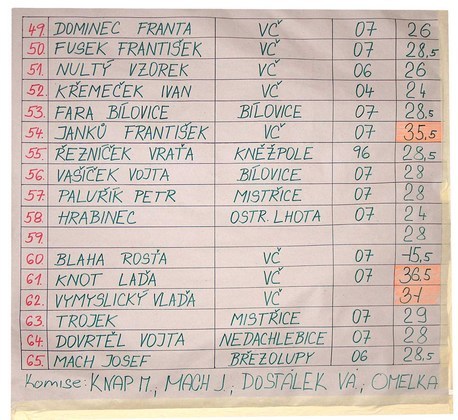 49. DOMINEC FRANTA VČ 07 26
50. FUSEK FRANTIŠEK VČ 07 28,5
51. NULTÝ VZOREK VČ 06 26
52. KŘEMEČEK IVAN VČ 04 24
53. FARA BÍLOVICE BÍLOVICE 07 28,5
54. JANKŮ FRANTIŠEK VČ 07 35,5
55. ŘEZNÍČEK VRAŤA KNĚŽPOLE 96 28,5
56. VAŠÍČEK VOJTA BÍLOVICE 07 28
57. PALUŘÍK PETR MISTŘICE 07 28
58. HRABINEC OSTR. LHOTA 07 24
59. 28
60. BLAHA ROSŤA VČ 07 15,5
61. KNOT LAĎA VČ 07 36,5
62. VYMYSLICKÝ VLAĎA VČ 37
63. TROJEK MISTŘICE 07 29
64. DOVRTĚL VOJTA NEDACHLEBICE 07 28
65. MACH JOSEF BŘEZOLUPY 06 28,5
Komise: KNAP M., MACH J., DOSTÁLEK VÁ., OMELKA